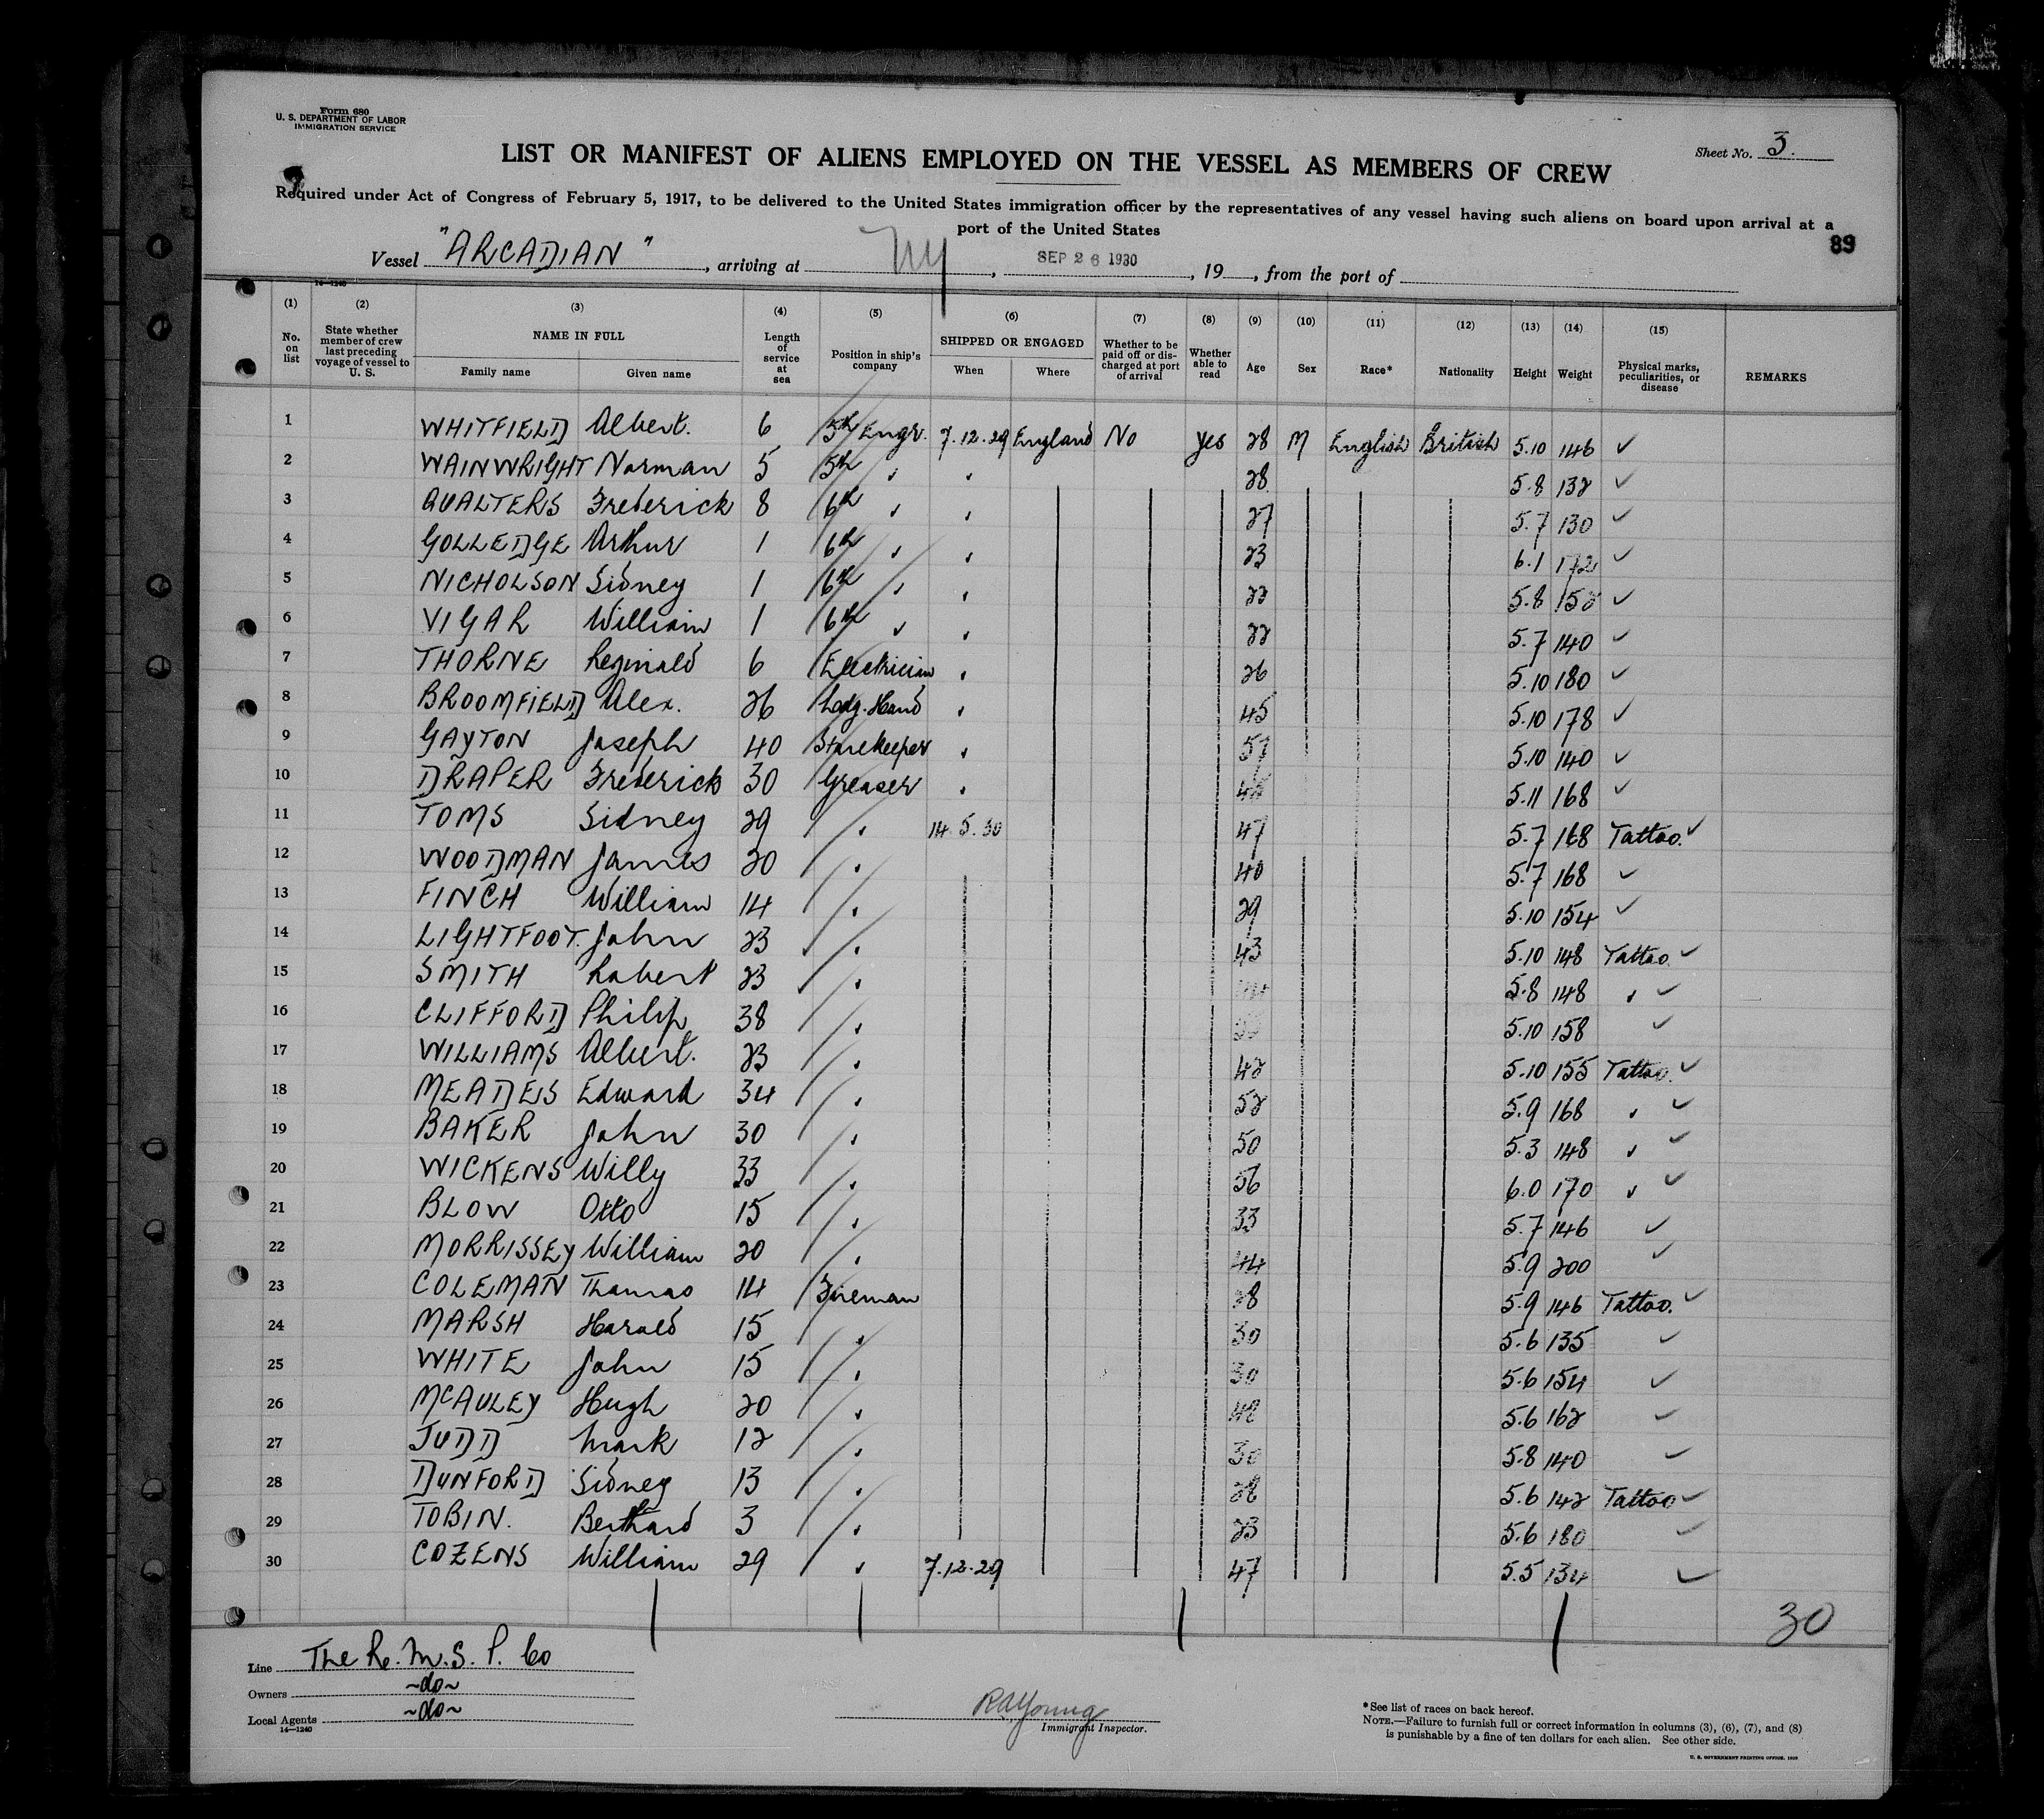 Form 680
U. S. DEPARTMENT OF LABOR
IMMIGRATION SERVICE
Sheet No. 3.
LIST OR MANIFEST OF ALIENS EMPLOYED ON THE VESSEL AS MEMBERS OF CREW
Required under Act of Congress of February 5, 1917, to be delivered to the United States immigration officer by the representatives of any vessel having such aliens on board upon arrival at a
port of the United States
89
Vessel "ARCADIAN", arriving at NY, SEP 26 1930, 19, from the port of
14—1240
(1) (2) (3) (4) (5) (6) (7) (8) (9) (10) (11) (12) (13) (14) (15)
No. on list State whether member of crew last preceding voyage of vessel to U. S. NAME IN FULL Length of service at sea Position in ship's company SHIPPED OR ENGAGED Whether to be paid off or discharged at port of arrival Whether able to read Age Sex Race* Nationality Height Weight Physical marks, peculiarities, or disease REMARKS
Family name Given name When Where
1 WHITFIELD Albert. 6 5th Engr. 7.12.29 England No yes 28 M English British 5.10 146 ✓
2 WAINWRIGHT Norman 5 5th " " 28 5.8 132 ✓
3 QUALTERS Frederick 8 6th " " 27 5.7 130 ✓
4 GOLLEDGE Arthur 1 6th " " 23 6.1 172 ✓
5 NICHOLSON Sidney 1 6th " " 22 5.8 152 ✓
6 VIGAR William 1 6th " " 22 5.7 140 ✓
7 THORNE Reginald 6 Electrician " 26 5.10 180 ✓
8 BROOMFIELD Alex. 26 Ldg. Hand " 45 5.10 178 ✓
9 GAYTON Joseph 40 Storekeeper " 57 5.10 140 ✓
10 DRAPER Frederick 30 Greaser " 5.11 168 ✓
11 TOMS Sidney 29 " 14.5.30 47 5.7 168 Tattoo. ✓
12 WOODMAN James 20 " 40 5.7 168 ✓
13 FINCH William 14 " 29 5.10 154 ✓
14 LIGHTFOOT. John 23 " 43 5.10 148 Tattoo. ✓
15 SMITH Robert 23 " 5.8 148 " ✓
16 CLIFFORD Philip 38 " 5.10 158 ✓
17 WILLIAMS Albert. 23 " 42 5.10 155 Tattoo. ✓
18 MEADES Edward 34 " 52 5.9 168 " ✓
19 BAKER John 30 " 50 5.3 148 " ✓
20 WICKENS Willy 33 " 56 6.0 170 " ✓
21 BLOW Otto 15 " 33 5.7 146 ✓
22 MORRISSEY William 20 " 44 5.9 200 ✓
23 COLEMAN Thomas 14 Fireman 28 5.9 146 Tattoo. ✓
24 MARSH Harold 15 " 30 5.6 135 ✓
25 WHITE John 15 " 30 5.6 154 ✓
26 McAULEY Hugh 20 " 48 5.6 162 ✓
27 JUDD Mark 12 " 30 5.8 140 ✓
28 DUNFORD Sidney 13 " 28 5.6 142 Tattoo ✓
29 TOBIN. Berthard 3 " 23 5.6 180 ✓
30 COZENS William 29 " 7.12.29 47 5.5 134 ✓
30
Line The R. M. S. P. Co
Owners ~do~
Local Agents ~do~
14—1240
RAYoung
Immigrant Inspector.
*See list of races on back hereof.
NOTE.—Failure to furnish full or correct information in columns (3), (6), (7), and (8)
is punishable by a fine of ten dollars for each alien. See other side.
U. S. GOVERNMENT PRINTING OFFICE. 1929